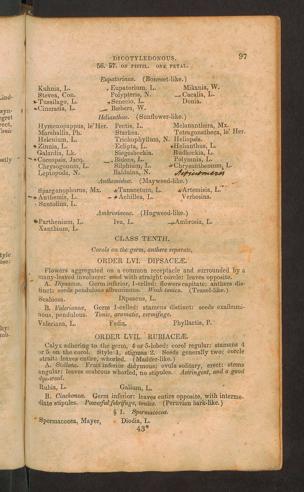 DICOTYLEDONOUS. 97
56. 57. OF PISTIL. ONE PETAL.
Eupatorinæ. (Boneset-like.)
Kuhnia, L. Eupatorium, L. Mikania, W.
Stevea, Cav. Polypteris, N. Cacalia, L.
Tussilago, L. Senecio, L. Donia.
Cineraria, L. Boebera, W.
Heliantheæ. (Sunflower-like.)
Hymenopappus, le'Her. Pectis, L. Melananthera, Mx.
Marshallia, Ph. Starkea. Tetragonotheca, le' Her.
Helenium, L. Trichophyllum, N. Heliopsis.
Zinnia, L. Eclipta, L. Helianthus, L.
Galardia, Lk. Siegesbeckia. Rudbeckia, L.
Coreopsis, Jacq. Bidens, L. Polymnia, L.
Chrysogonum, L. Silphium, L. Chrysanthemum, L.
Leptopoda, N. Balduina, N.
Anthemideæ. (Mayweed-like.)
Sparganophorus, Mx. Tanacetum, L. Artemisia, L.
Anthemis, L. Achillea, L. Verbesina.
Santolina, L.
Ambrosiaceæ. (Hogweed-like.)
Parthenium, L. Iva, L. Ambrosia, L.
Xanthium, L.
CLASS TENTH.
Corols on the germ, anthers separate,
ORDER LVI. DIPSACEÆ.
Flowers aggregated on a common receptacle and surrounded by a
many-leaved involucre: seed with straight corcle: leaves opposite.
A. Dipsaceæ. Germ inferior, 1-celled; flowers capitate: anthers dis-
tinct: seeds pendulous albuminous. Weak tonics. (Teasel-like.)
Scabiosa. Dipsacus, L.
B. Valerianeæ. Germ 1-celled: stamens distinct: seeds exalbumi-
nous, pendulous. Tonic, aromatic, vermifuge.
Valeriana, L. Fedia. Phyllactis, P.
ORDER LVII. RUBIACEÆ.
Calyx adhering to the germ, 4 or 5-lobed: corol regular: stamens 4
or 5 on the corol. Style 1, stigmas 2. Seeds generally two; corcle
strait: leaves entire, whorled. (Madder-like.)
A. Stellatæ. Fruit inferior didymous; ovula solitary, erect: stems
angular: leaves scabrous whorled, no stipules. Astringent, and a good
dye-wood.
Rubia, L. Galium, L.
B. Cinchoneæ. Germ inferior: leaves entire opposite, with interme-
diate stipules. Powerful febrifuge, tonics. (Peruvian bark-like.)
§ 1. Spermacoceæ.
Spermacoce, Mayer, Diodia, L.
43*